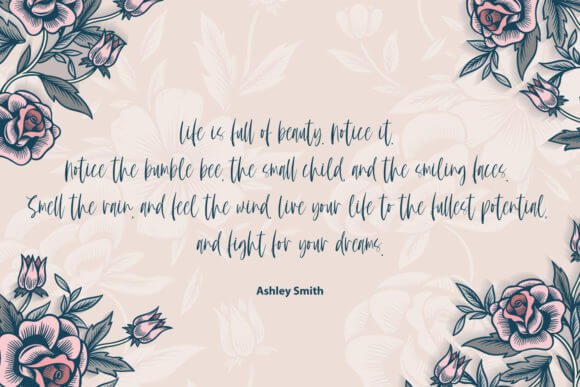 Life is full of beauty. Notice it.
Notice the bumble bee, the small child, and the smiling faces.
Smell the rain, and feel the wind. Live your life to the fullest potential,
and fight for your dreams.
Ashley Smith